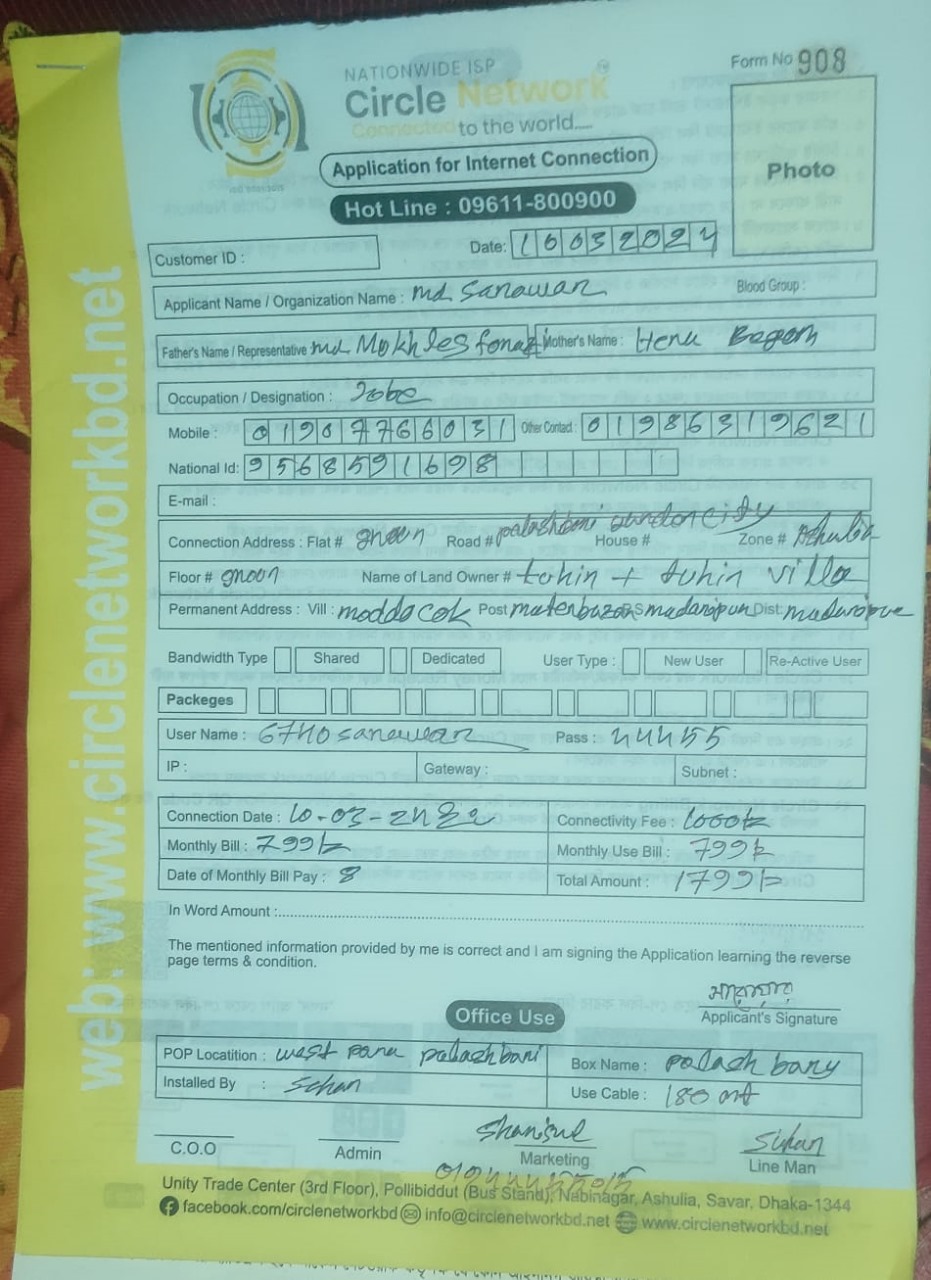 NATIONWIDE ISP
Form No 908
Circle Network
Connected to the world.....
ISO 9001:2015
Application for Internet Connection
Photo
Hot Line : 09611-800900
Date: 10032024
Customer ID :
Applicant Name / Organization Name : md Sanawan
Blood Group :
Father's Name / Representative md Mokhles Mother's Name : Henu Begom
Occupation / Designation : Jobe
Mobile : 01907766031 Other Contact : 01986319621
National Id: 9568591698
E-mail :
Connection Address : Flat # gnoon Road # palashbani gandon city House # Zone # Ashulia
Floor # gnoon Name of Land Owner # tohin + tuhin villa
Permanent Address : Vill : moddacok Post matenbazan madaripun Dist: madaripur
Bandwidth Type Shared Dedicated User Type : New User Re-Active User
Packeges
User Name : 6740sanawan Pass : 44455
IP : Gateway : Subnet :
Connection Date : 10-03-24 Connectivity Fee : 1000/=
Monthly Bill : 799/= Monthly Use Bill : 799/=
Date of Monthly Bill Pay : 8 Total Amount : 1799/=
In Word Amount :
The mentioned information provided by me is correct and I am signing the Application learning the reverse
page terms & condition.
Applicant's Signature
Office Use
POP Locatition : west para palashbari Box Name : palash bany
Installed By : Sihan Use Cable : 180 mt
Shamsul Sihan
C.O.O Admin Marketing Line Man
Unity Trade Center (3rd Floor), Pollibiddut (Bus Stand), Nabinagar, Ashulia, Savar, Dhaka-1344
facebook.com/circlenetworkbd info@circlenetworkbd.net www.circlenetworkbd.net
web: www.circlenetworkbd.net